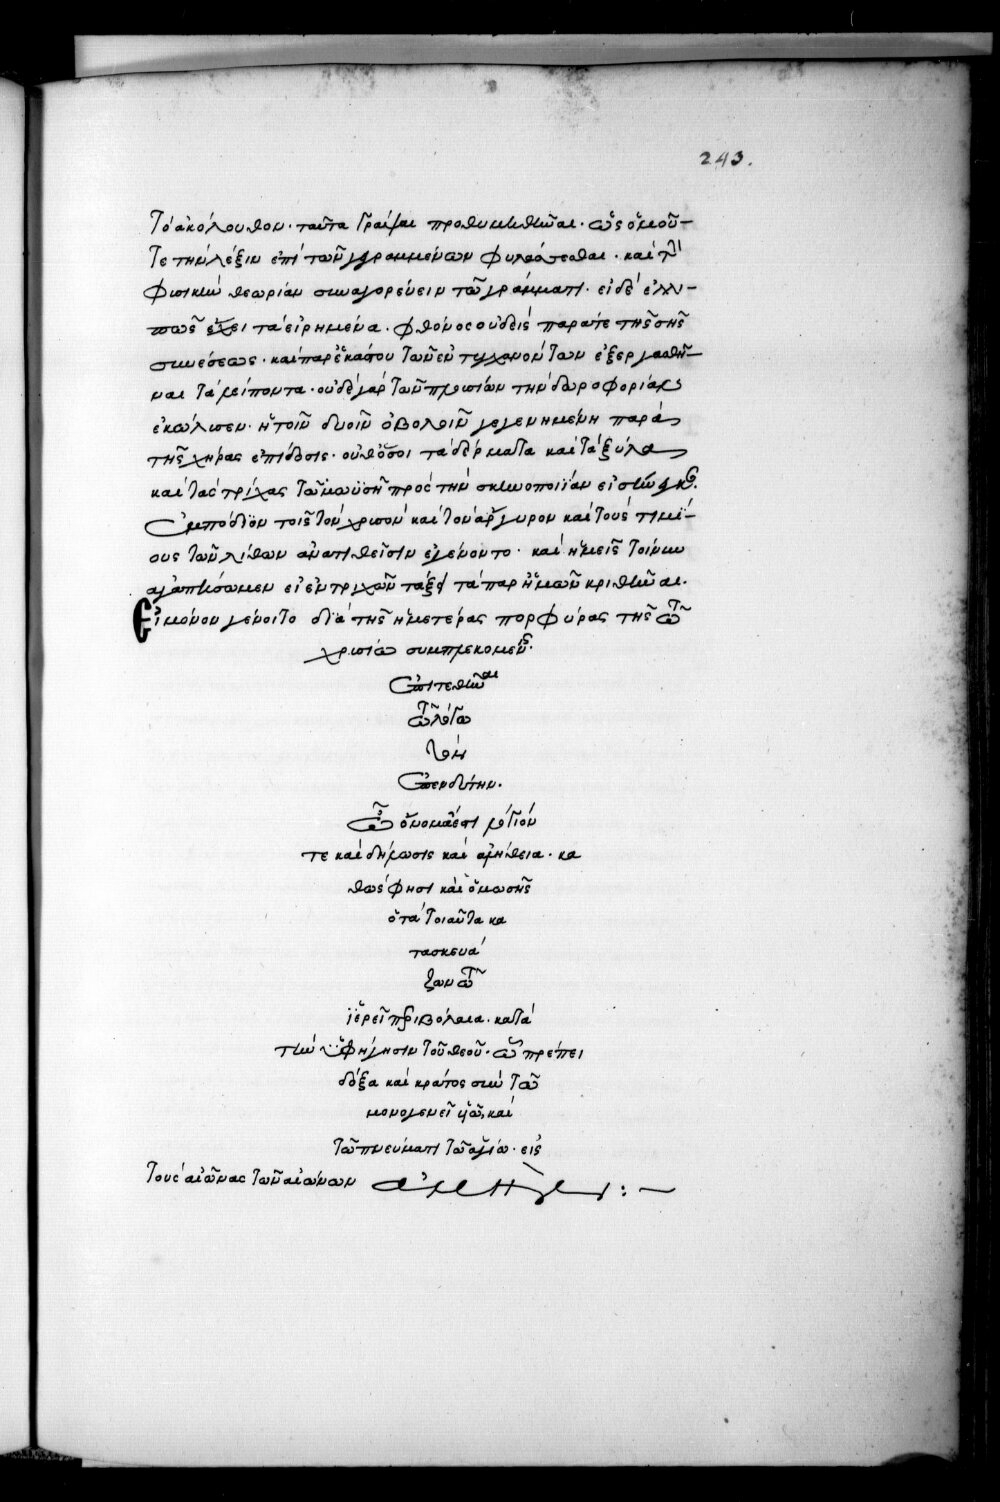 243.
Τὸ ἀκόλουθον· ταῦτα γράψαι προθυμηθῆναι· ὡς ὁμοῦ
τε τὴν λέξιν ἐπὶ τῶν γεγραμμένων φυλάττεσθαι· καὶ τὴν
φυσικὴν θεωρίαν συναγορεύειν τῷ γράμματι· εἰ δὲ ἐλλι-
πῶς ἔχει τὰ εἰρημένα· φθόνος οὐδεὶς παρά τε τῆς σῆς
συνέσεως· καὶ παρ' ἑκάστου τῶν ἐντυγχανόντων ἐξεργασθῆ-
ναι τὰ λείποντα· οὐδὲ γὰρ τῶν πλουσίων τὴν δωροφορίαν
ἐκώλυσεν· ἡ τοῖν δυοῖν ὀβολοῖν γεγενημένη παρὰ
τῆς χήρας ἐπίδοσις· οὐδ' ὅσοι τὰ δέρματα καὶ τὰ ξύλα
καὶ τὰς τρίχας τῷ μωϋσῇ πρὸς τὴν σκηνοποιΐαν εἰσήνεγκον.
Ἐμπόδιον τοῖς τὸν χρυσὸν καὶ τὸν ἄργυρον καὶ τοὺς τιμί-
ους τῶν λίθων ἀνατιθεῖσιν ἐγένοντο· καὶ ἡμεῖς τοίνυν
ἀγαπήσωμεν εἰ ἐν τριχῶν τάξει τὰ παρ' ἡμῶν κριθῆναι.
Εἰ μόνον γένοιτο διὰ τῆς ἡμετέρας πορφύρας τῆς τῷ
χρυσίῳ συμπλεκομένης·
ἐπιτεθῆναι
τῷ λόγῳ
τὸν
ἐπενδύτην.
ᾧ ὄνομά ἐστι λόγιόν
τε καὶ δήλωσις καὶ ἀλήθεια· κα
θώς φησι καὶ ὁ μωσῆς
ὁ τὰ τοιαῦτα κα
τασκευά
ζων τῷ
ἱερεῖ περιβόλαια· κατὰ
τὴν ὑφήγησιν τοῦ θεοῦ· ᾧ πρέπει
δόξα καὶ κράτος σὺν τῷ
μονογενεῖ υἱῷ, καὶ
τῷ πνεύματι τῷ ἁγίῳ· εἰς
τοὺς αἰῶνας τῶν αἰώνων ἀμήν : —